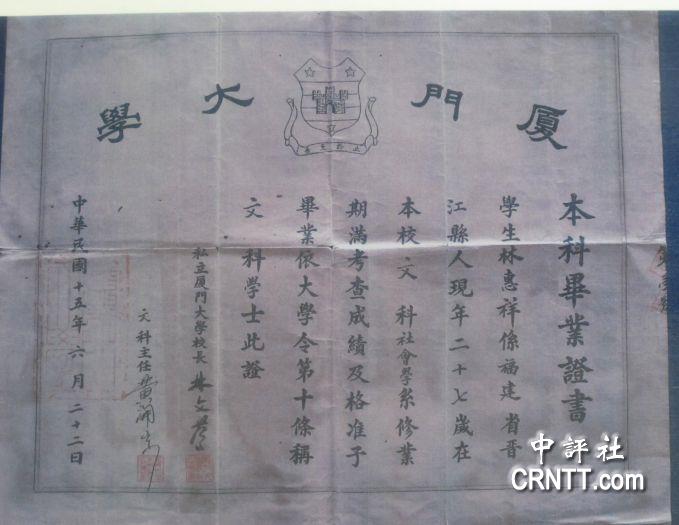 廈門大學
止於至善
本科畢業證書
學生林惠祥係福建省晉
江縣人現年二十七歲在
本校文科社會學系修業
期滿考查成績及格准予
畢業依大學令第十條稱
文科學士此證
私立廈門大學校長 林文慶
文科主任
中華民國十五年六月二十二日
中評社
CRNTT.com